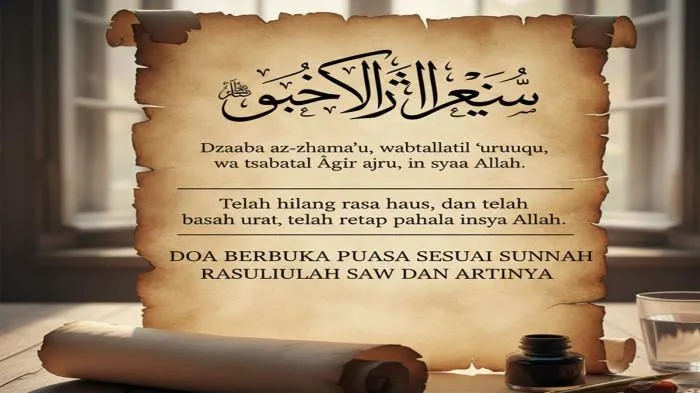 Dzaaba az-zhama’u, wabtallatil ‘uruuqu,
wa tsabatal Âgir ajru, in syaa Allah.
Telah hilang rasa haus, dan telah
basah urat, telah retap pahala insya Allah.
DOA BERBUKA PUASA SESUAI SUNNAH
RASULIULAH SAW DAN ARTINYA